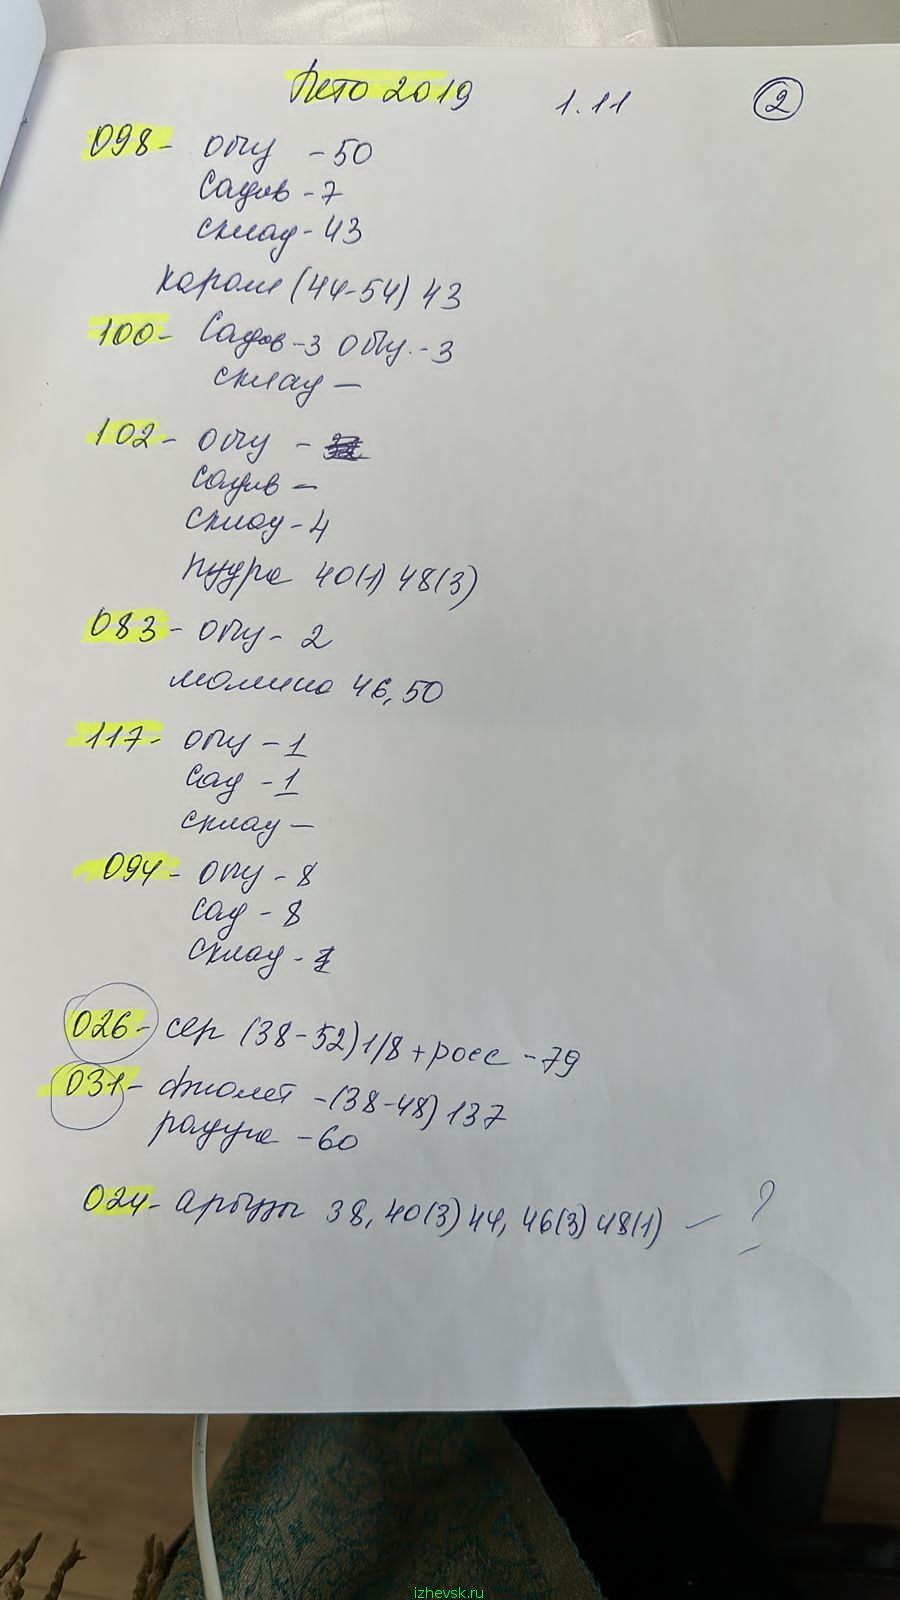 Лето 2019 1.11 2
098- опу -50
Садов -7
склад -43
(44-54) 43
100- Садов -3 опу. -3
склад —
102- опу -
садов —
склад -4
пудра 40(1) 48(3)
083- опу - 2
малина 46, 50
117- опу -1
сад -1
склад —
094- опу - 8
сад - 8
склад -
026- сер (38-52) 118 + росс -79
031- фиолет -(38-48) 137
радуга -60
024- арбузы 38, 40(3) 44, 46(3) 48(1) — ?
izhevsk.ru